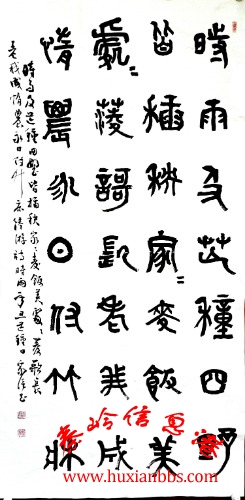 時雨及芒種四野
皆插秧家=麥飯美
處=菱謌長老我成
惰農永日付竹牀
時雨及芒種四野皆插秧家々麥飯美處々菱歌長
老我成惰農永日付竹床 陸游詩時雨 辛丑芒種日
秦岭信息
www.huxianbbs.com